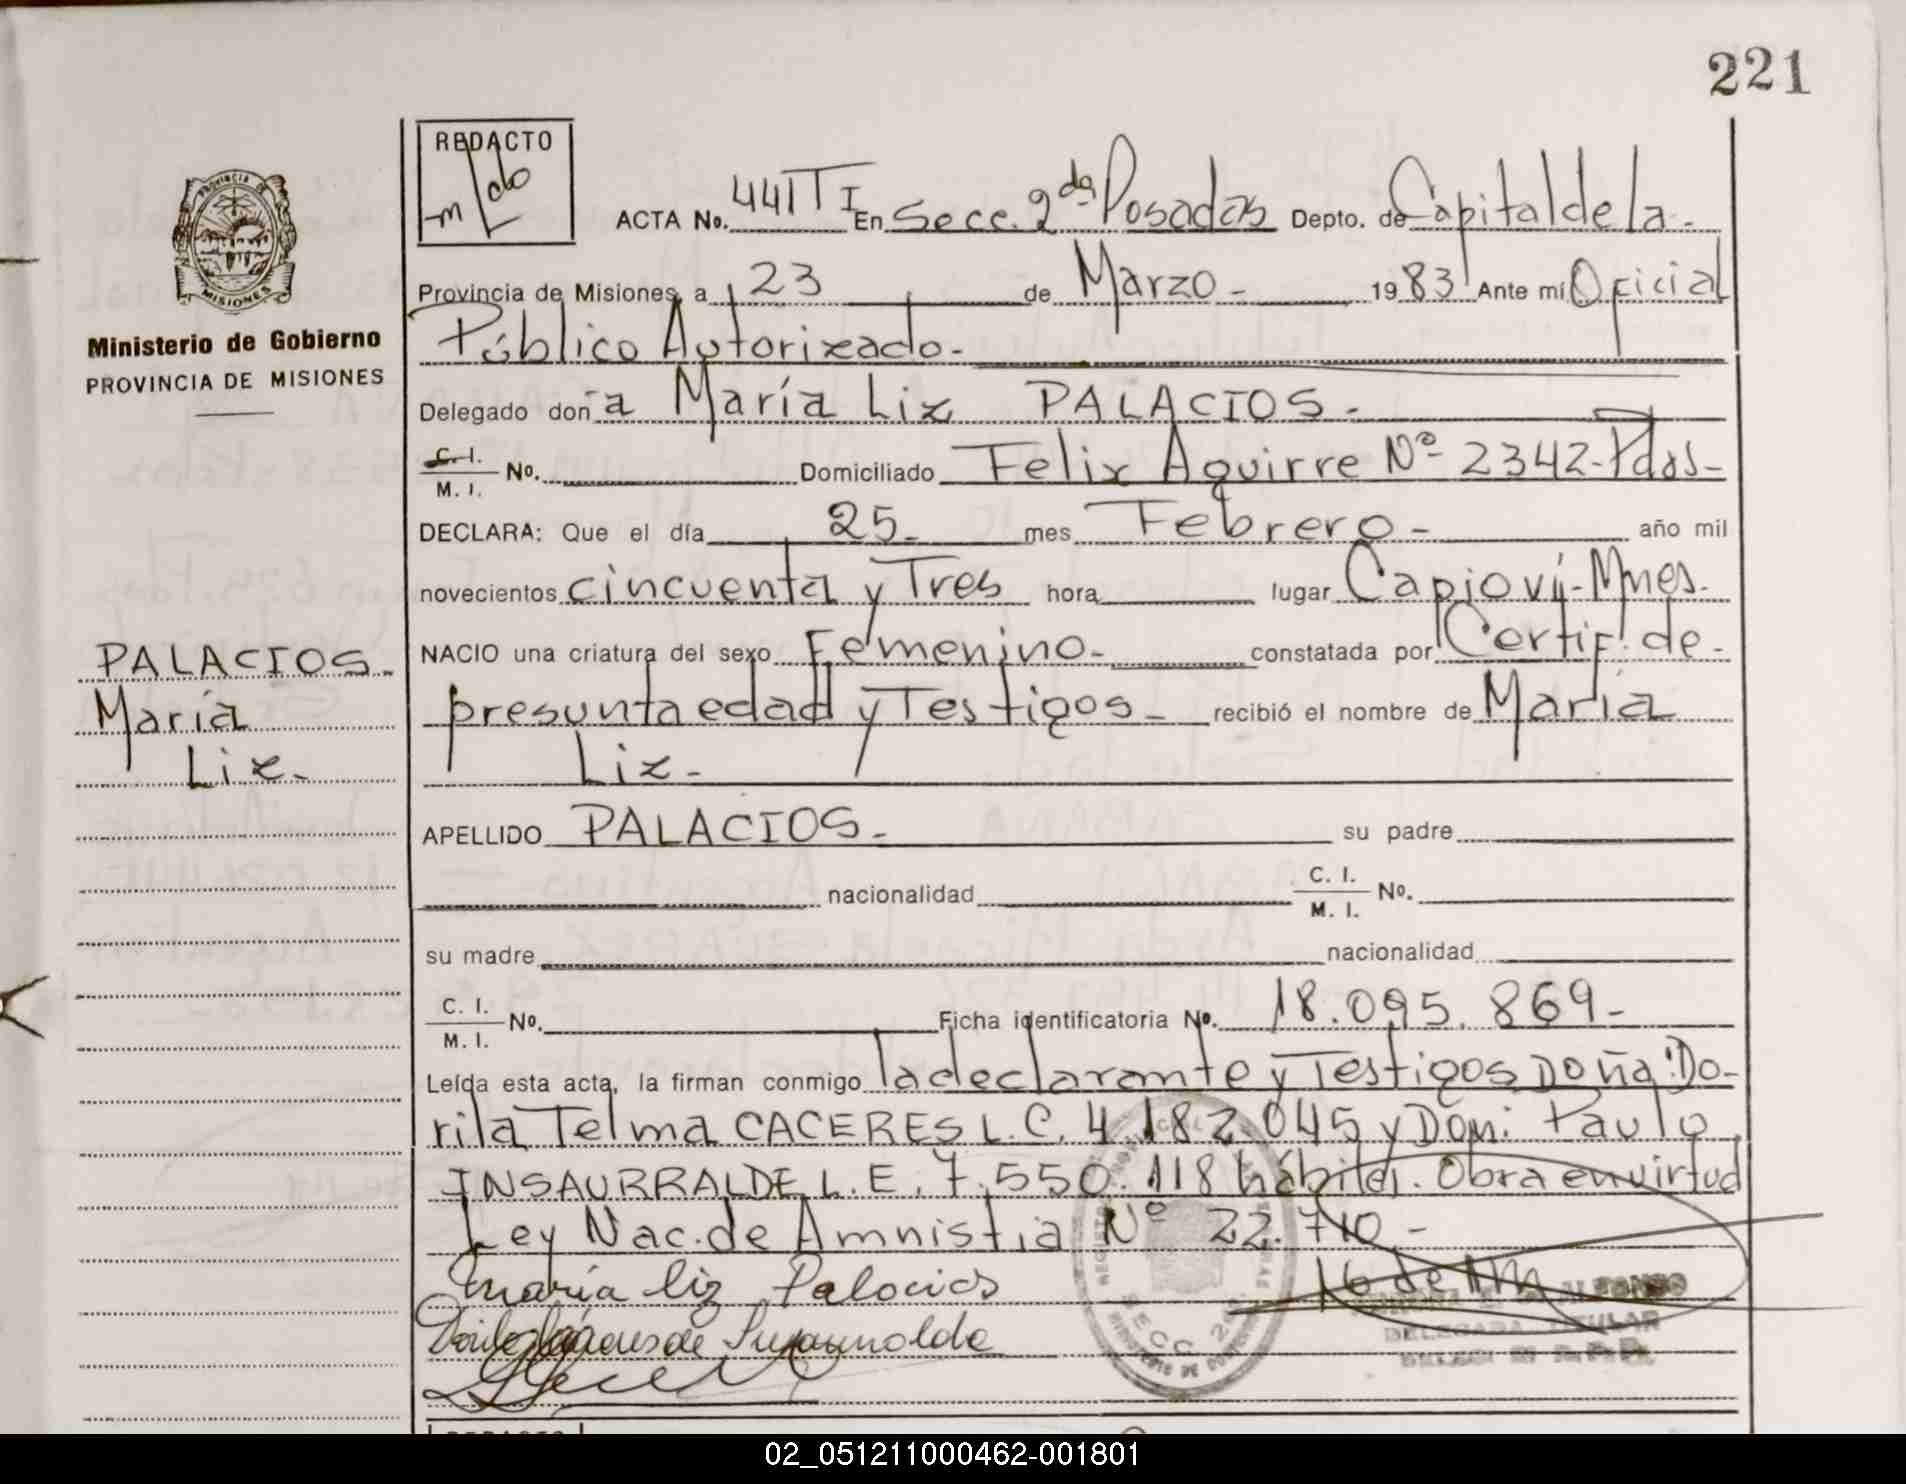 221
REDACTO
PROVINCIA DE
MISIONES
Ministerio de Gobierno
PROVINCIA DE MISIONES
ACTA No. 441 T I En Secc. 2da Posadas Depto. de Capital de la -
Provincia de Misiones, a 23 de Marzo - 1983 Ante mí Oficial
Público Autorizado -
Delegado don a María Liz PALACIOS -
C. I. / M. I. No. Domiciliado Felix Aguirre Nº 2342 - Pdas -
DECLARA: Que el día 25 - mes Febrero - año mil
novecientos cincuenta y Tres hora lugar Capioví - Mnes.
NACIO una criatura del sexo Femenino - constatada por Certif. de -
presunta edad y Testigos - recibió el nombre de María
Liz -
APELLIDO PALACIOS - su padre
nacionalidad C. I. / M. I. No.
su madre nacionalidad
C. I. / M. I. No. Ficha identificatoria No. 18.095.869 -
Leída esta acta, la firman conmigo la declarante y Testigos Doña: Do-
rila Telma CACERES L.C. 4.182.045 y Don: Paulo
INSAURRALDE L.E. 7.550.118 hábiles. Obra en virtud
Ley Nac. de Amnistia Nº 22.710 -
PALACIOS -
María
Liz -
maria liz Palacios
SECC 2
DELEGADA TITULAR
02_051211000462-001801